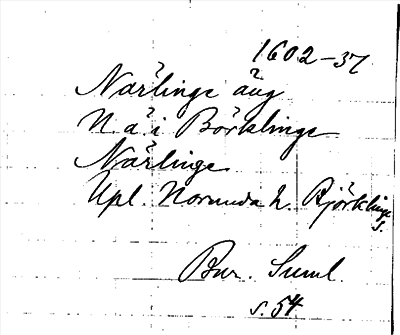 1602-37
Närlinge äng
N ä i Börklinge
Närlinge
Upl. Norunda h. Björklinge s.
Bur. Suml.
s. 54